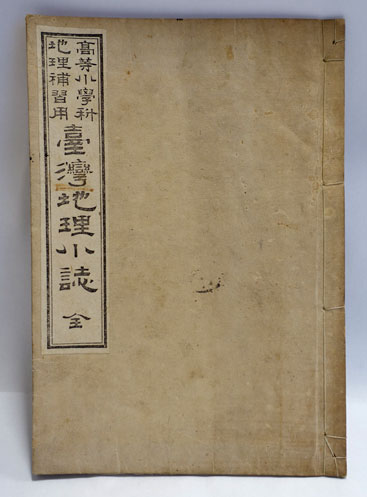 高等小學科
地理補習用
臺灣地理小誌
全